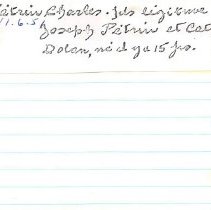 Pitrin Charles. fils légitime
11.6.5
Joseph Pitrin et Cat
Dolan, né il y a 15 jrs.